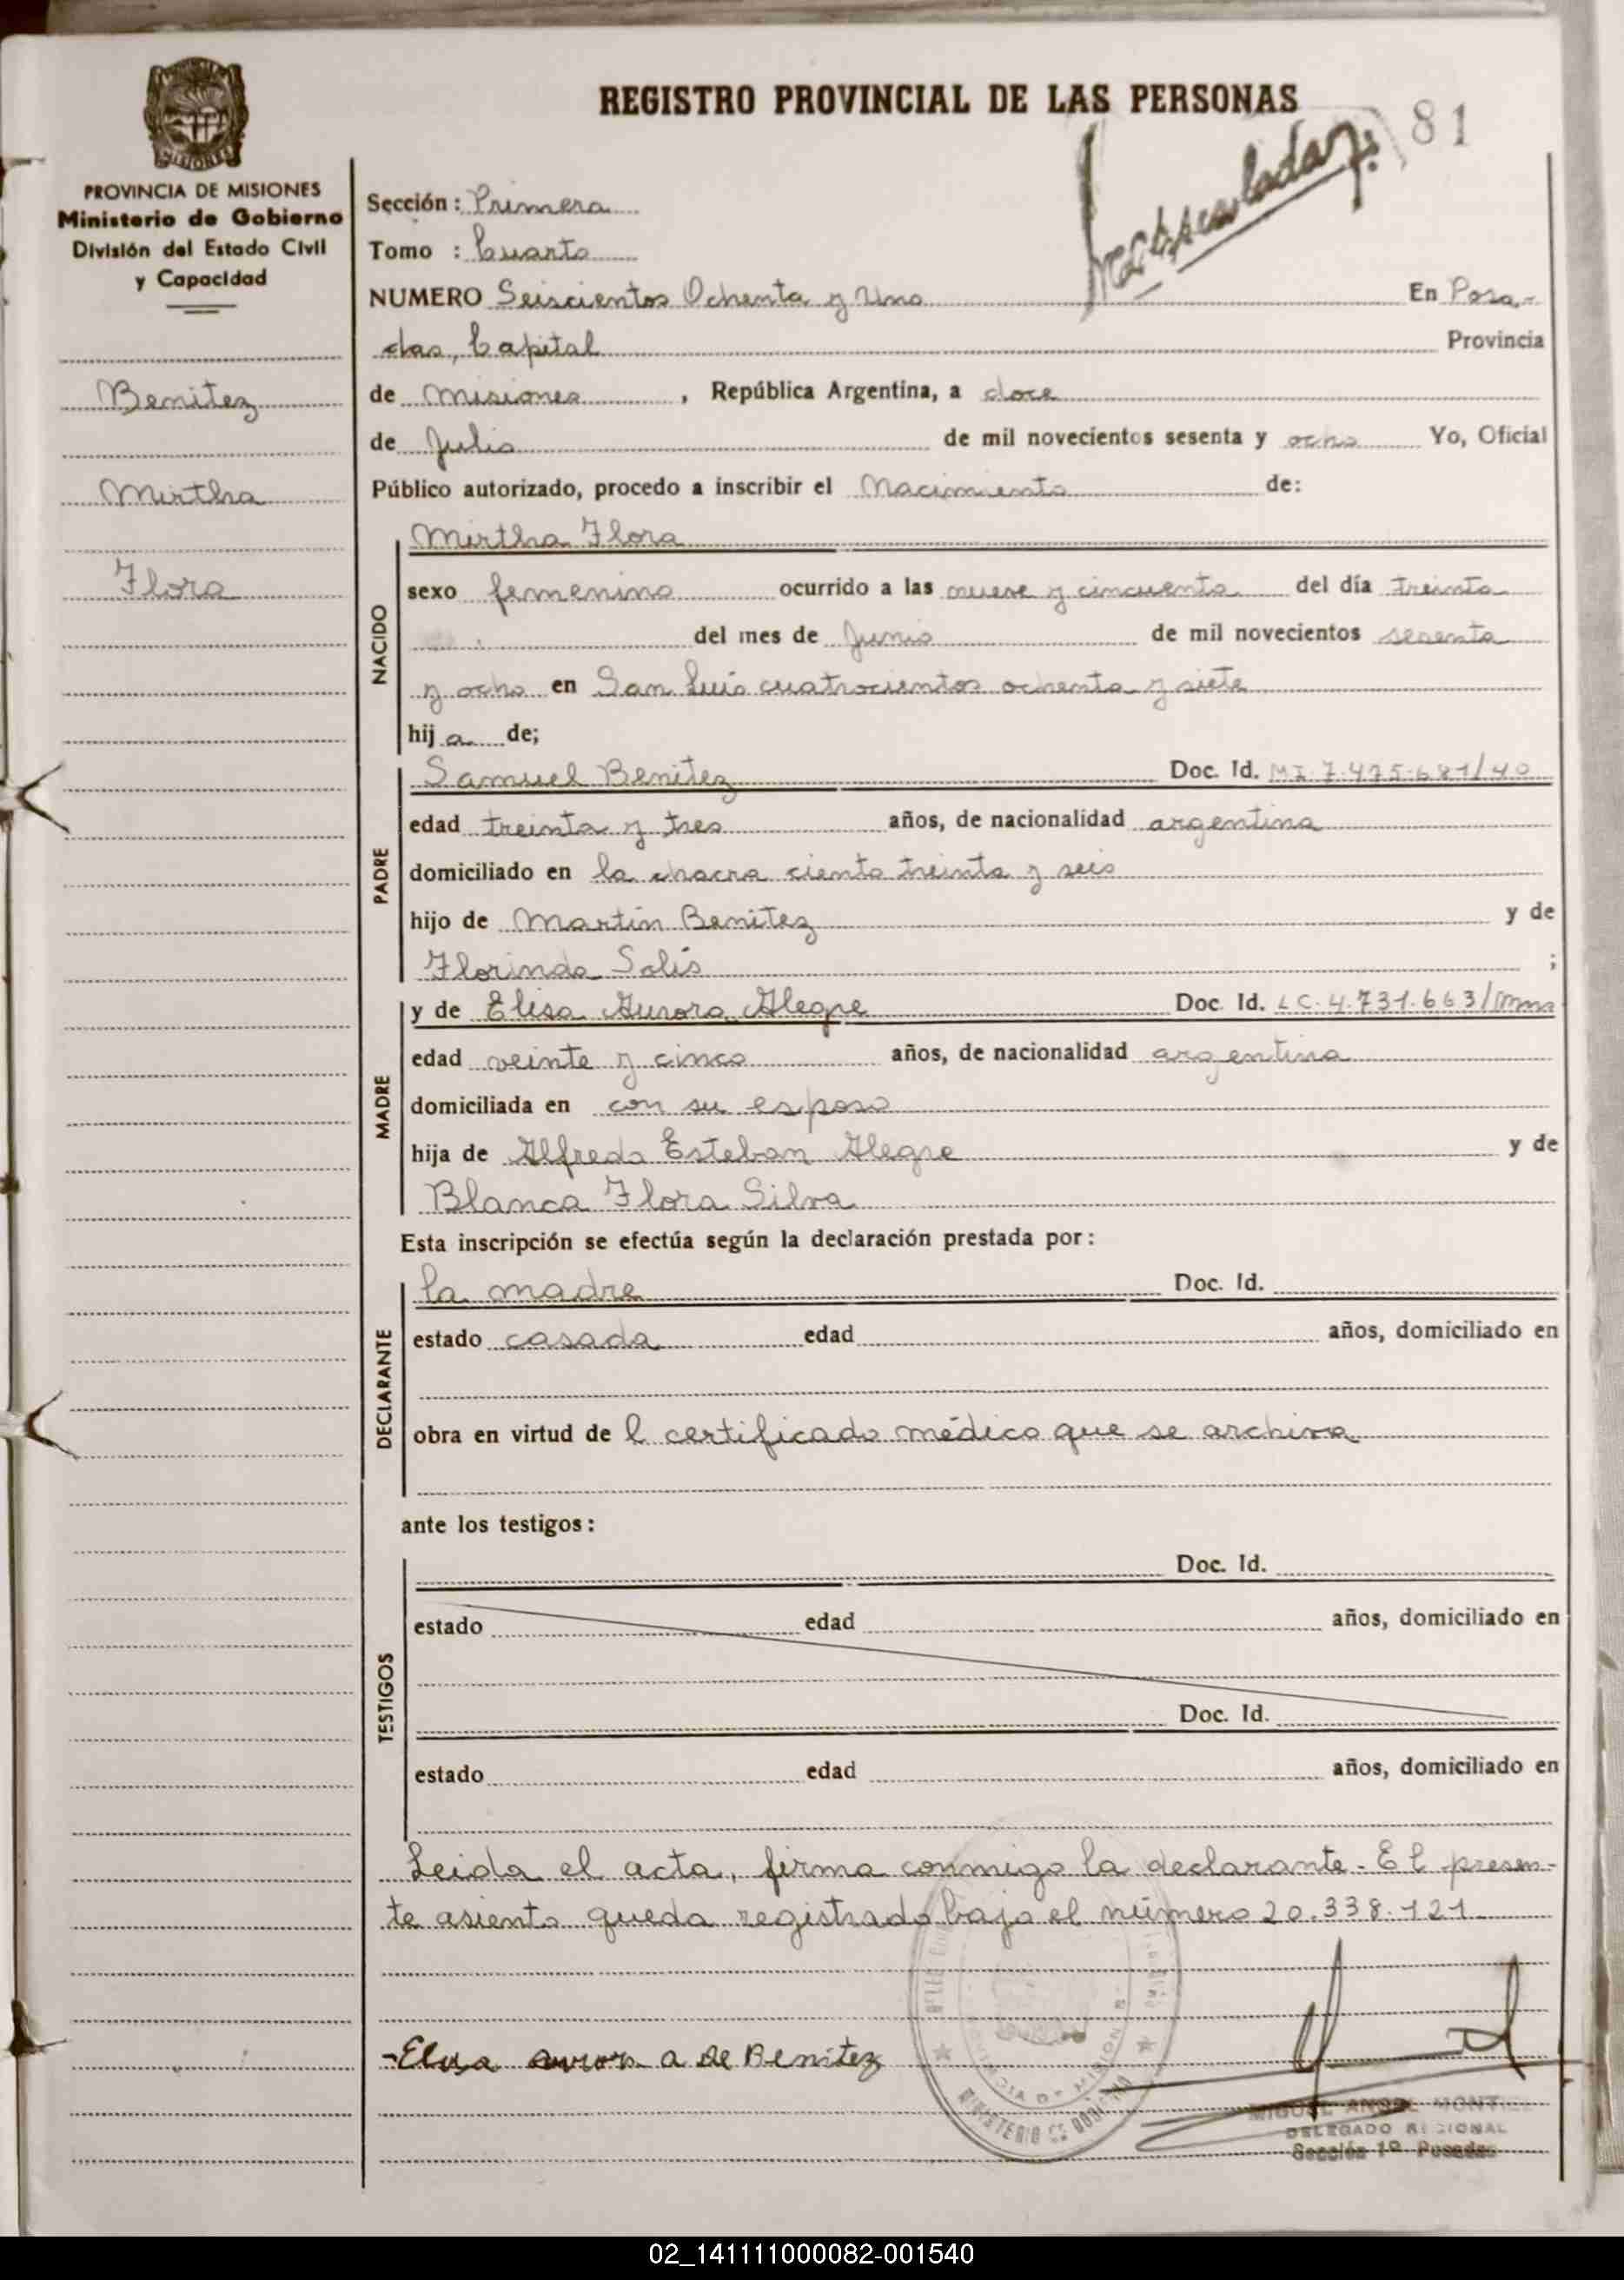 REGISTRO PROVINCIAL DE LAS PERSONAS
81
MISIONES
PROVINCIA DE MISIONES
Ministerio de Gobierno
División del Estado Civil
y Capacidad
Benitez
Mirtha
Flora
Sección: Primera
Tomo : Cuarto
NUMERO Seiscientos Ochenta y Uno En Posa-
das, Capital Provincia
de Misiones, República Argentina, a doce
de Julio de mil novecientos sesenta y ocho Yo, Oficial
Público autorizado, procedo a inscribir el Nacimiento de:
NACIDO
Mirtha Flora
sexo femenino ocurrido a las nueve y cincuenta del día treinta
del mes de Junio de mil novecientos sesenta
y ocho en San Luis cuatrocientos ochenta y siete
hij a de;
PADRE
Samuel Benitez Doc. Id. MI. 7.475.681/40
edad treinta y tres años, de nacionalidad argentina
domiciliado en la chacra ciento treinta y seis
hijo de Martin Benitez y de
Florinda Solis ;
MADRE
y de Elisa Aurora Alegre Doc. Id. LC. 4.731.663/Mnes
edad veinte y cinco años, de nacionalidad argentina
domiciliada en con su esposo
hija de Alfredo Esteban Alegre y de
Blanca Flora Silva
Esta inscripción se efectúa según la declaración prestada por:
DECLARANTE
la madre Doc. Id.
estado casada edad años, domiciliado en
obra en virtud de l certificado médico que se archiva
ante los testigos:
TESTIGOS
Doc. Id.
estado edad años, domiciliado en
Doc. Id.
estado edad años, domiciliado en
Leida el acta, firma conmigo la declarante. El presen-
te asiento queda registrado bajo el número 20.338.121
-Elisa Aurora A de Benitez
MINISTERIO DE GOBIERNO
PROVINCIA DE MISIONES
MIGUEL ANGEL MONTIEL
DELEGADO REGIONAL
Sección 1ª Posadas
02_141111000082-001540